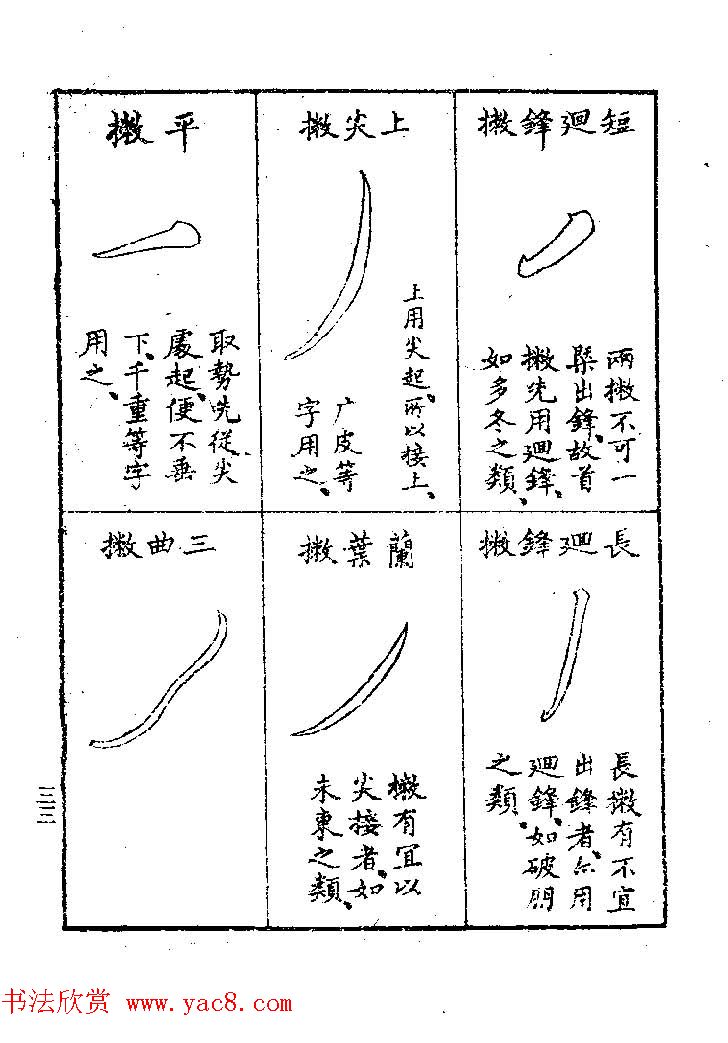 短廻鋒撇
兩撇不可一
槩出鋒、故首
撇先用廻鋒、
如多冬之類、
上尖撇
上用尖起、所以接上、
广皮等
字用之、
平撇
取勢先從尖
處起、便不垂
下、千重等字
用之、
長廻鋒撇
長撇有不宜
出鋒者、亦用
廻鋒、如破朋
之類、
蘭葉撇
撇有宜以
尖接者、如
未東之類、
三曲撇
三三
书法欣赏 www.yac8.com